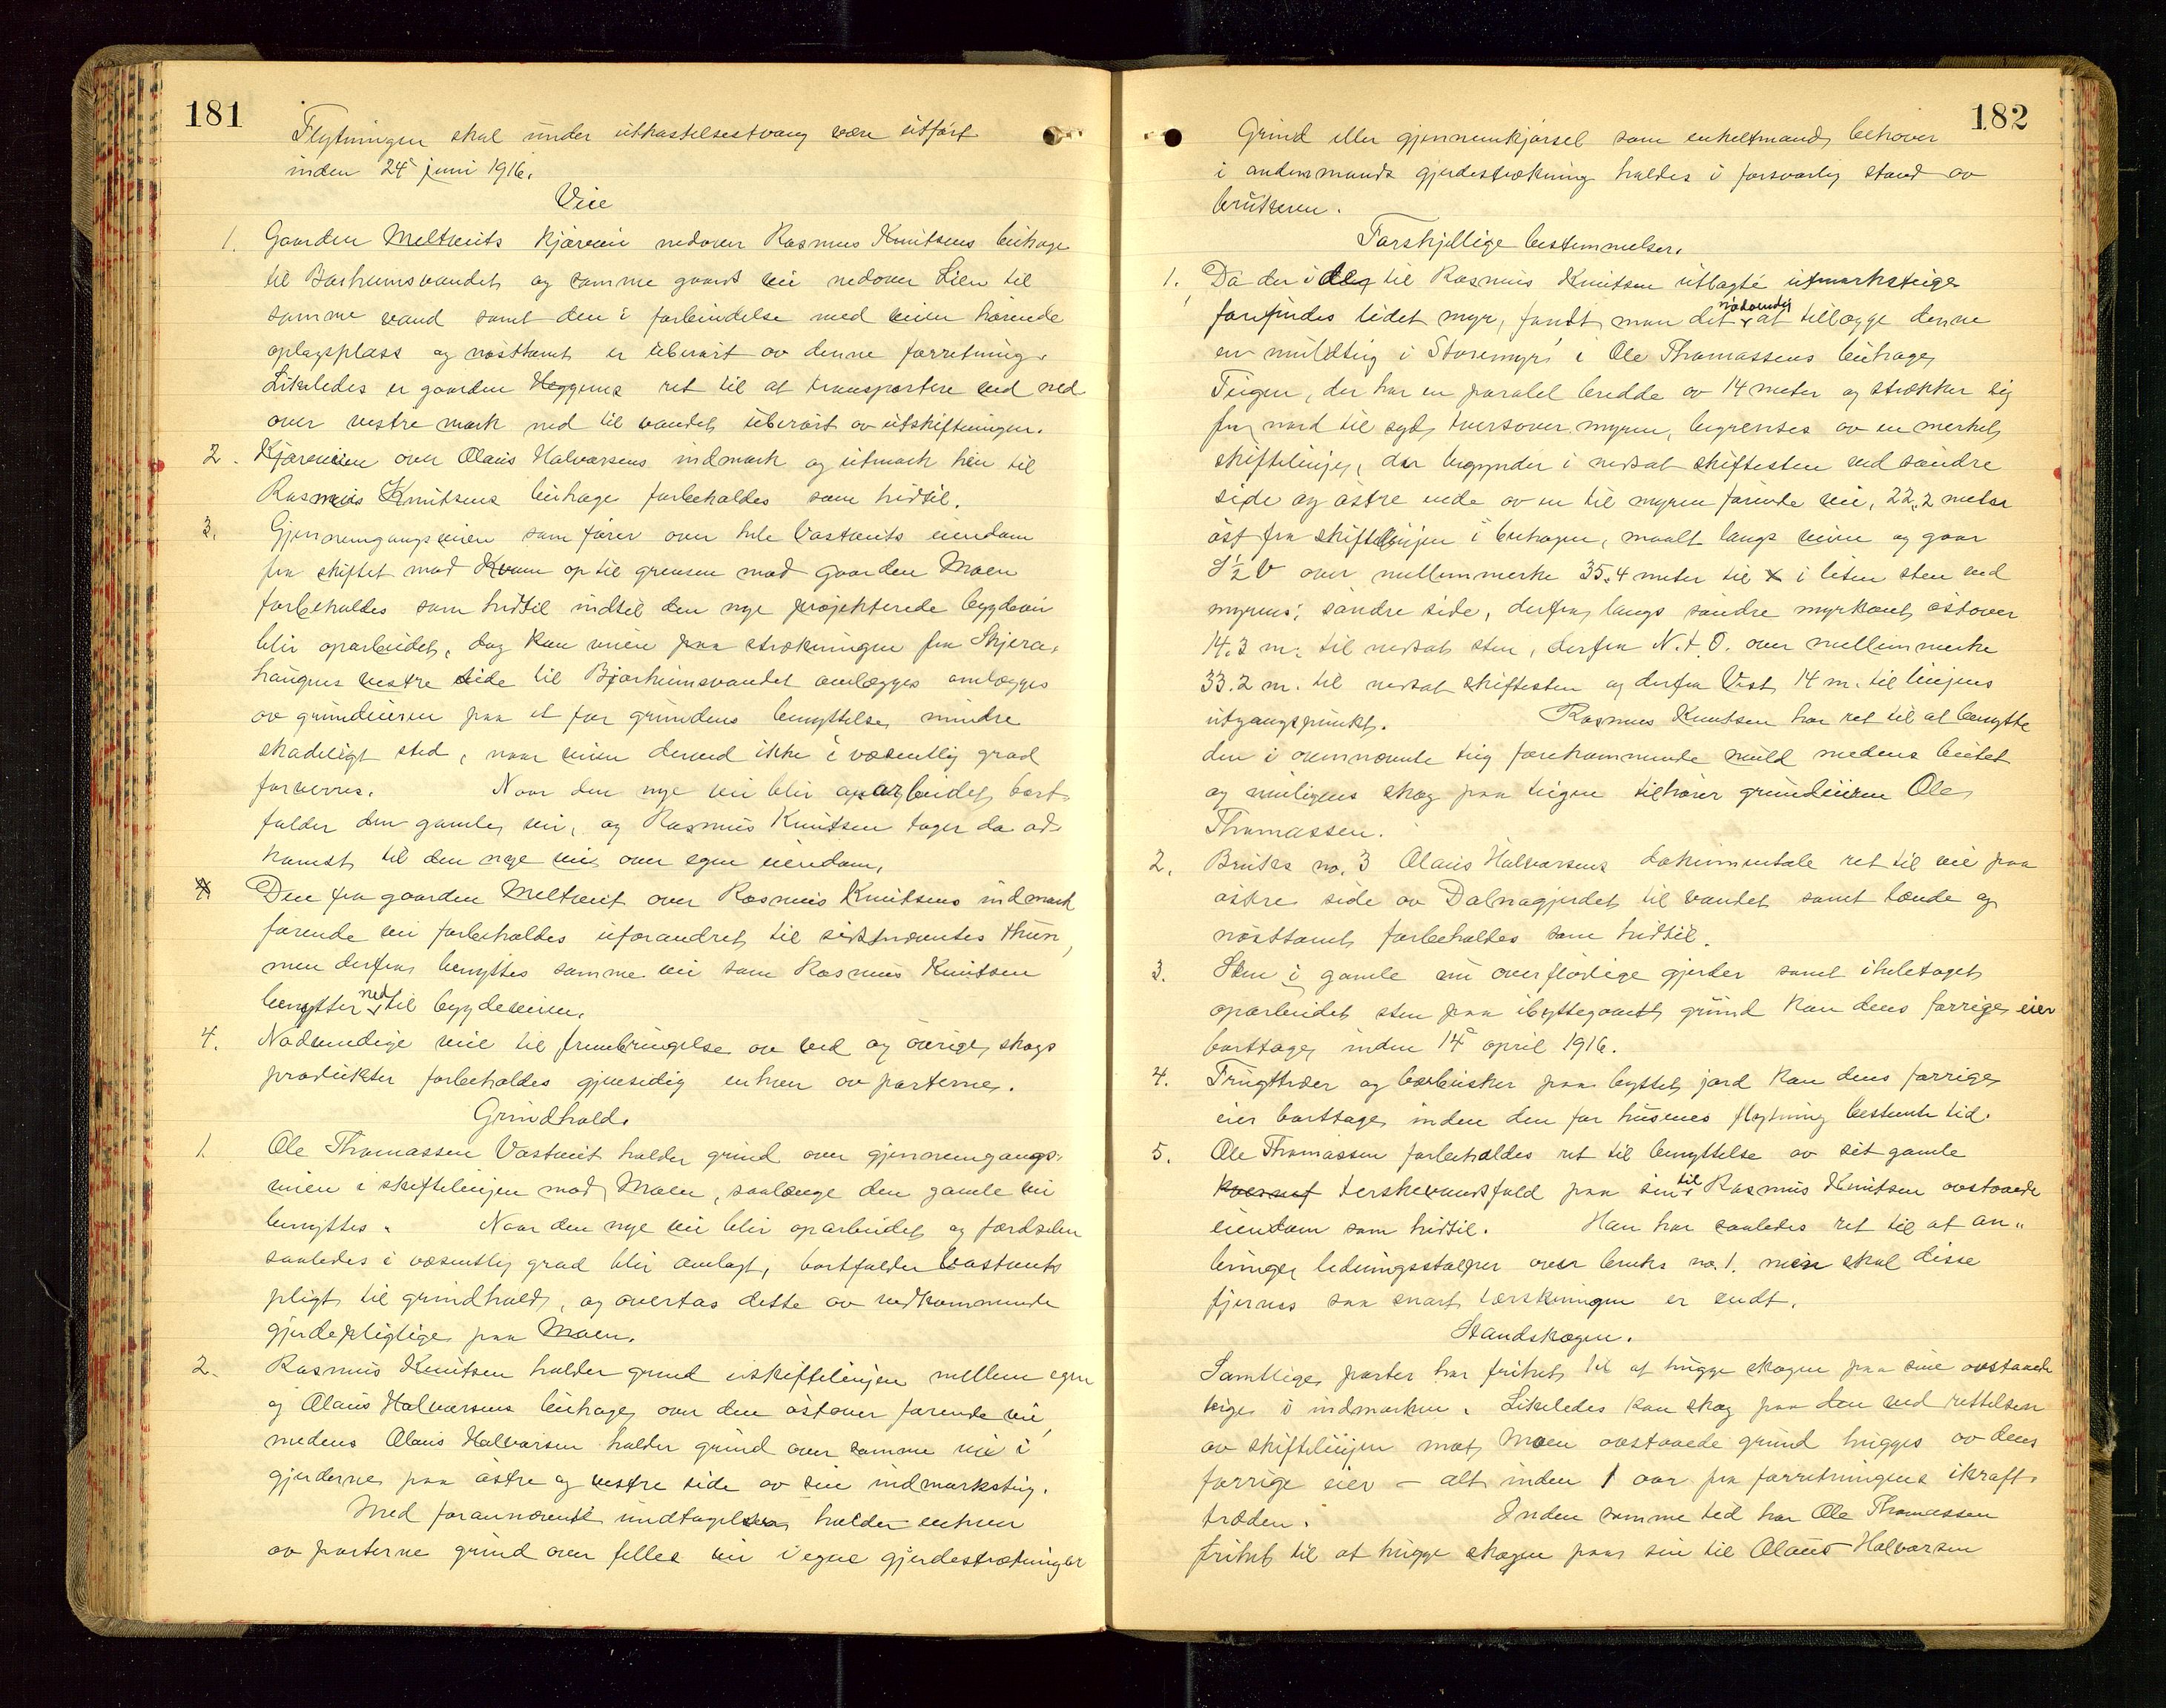 181
Flytningen skal under utkastelsestvang være utført
inden 24de juni 1916.
Veie
1. Gaarden Meltveits kjørevei nedover Rasmus Knutsens beitehage
til Bjørheimsvandet og samme gaards vei nedover Lien til
samme vand samt den i forbindelse med veien hørende
oplagsplass og nøsttomt er uberørt av denne forretning.
Likeledes er gaarden Heggems ret til at transportere ved ned
over vestre mark ned til vandet uberørt av utskiftningen.
2. Kjøreveien over Olaus Halvorsens indmark og utmark hen til
Rasmus Knutsens beitehage forbeholdes som hidtil.
3. Gjennemgangsveien som fører over hele Vastveits eiendom
fra skiftet mod Kvam op til grensen mod gaarden Moen
forbeholdes som hidtil indtil den nye projekterede bygdevei
blir oparbeidet, dog kan veien paa strækningen fra
haugens vestre side til Bjørheimsvandet omlægges omlægges
av grundeieren paa et for grundens benyttelse mindre
skadeligt sted, naar veien derved ikke i væsentlig grad
forverres. Naar den nye vei blir oparbeidet bort
falder den gamle vei, og Rasmus Knutsen tager da ad
komst til den nye vei over egen eiendom.
Den fra gaarden Meltveit over Rasmus Knutsens indmark
førende vei forbeholdes uforandret til sidstnævntes thun,
men derfra benyttes samme vei som Rasmus Knutsen
benytter ned til bygdeveien.
4. Nødvendige veie til frembringelse av ved og øvrige skogs
produkter forbeholdes gjensidig enhver av parterne.
Grindhold.
1. Ole Thomassen Vastveit holder grind over gjennemgangs-
veien i skiftelinjen mod Moen, saalænge den gamle vei
benyttes. Naar den nye vei blir oparbeidet og færdselen
saaledes i væsentlig grad blir omlagt, bortfalder Vastveits
pligt til grindhold, og overtas dette av vedkommende
gjerdepligtige paa Moen.
2. Rasmus Knutsen holder grind i skiftelinjen mellem egen
og Olaus Halvorsens beitehage over den østover førende vei,
medens Olaus Halvorsen holder grind over samme vei i
gjerderne paa østre og vestre side av sin indmarksteig.
Med forannævnte undtagelser holder enhver
av parterne grind over felles vei i egne gjerdestrækninger
182
Grind eller gjennemkjørsel som enkeltmand behøver
i andenmands gjerdestrækning holdes i forsvarlig stand av
brukeren.
Forskjellige bestemmelser.
1. Da der i den til Rasmus Knutsen utlagte utmarksteige
forefindes lidet myr, fandt man det nødvendig at tillægge denne
en muldteig i Storemyr i Ole Thomassens beitehage
Teigen, der har en paralel bredde av 14 meter og strækker sig
fra nord til syd tversover myren, begrenses av en merket
skiftelinje, der begynder i nedsat skiftesten ved søndre
side og østre ende av en til myren førende vei, 22,2 meter
øst fra skiftelinjen i beitehagen, maalt langs veien og gaar
S ½ V over mellemmerke 35.4 meter til x i liten sten ved
myrens søndre side, derfra langs søndre myrkant østover
14.3 m. til nedsat sten, derfra N.t.O. over mellemmerke
33.2 m. til nedsat skiftesten og derfra Vest 14 m. til linjens
utgangspunkt. Rasmus Knutsen har ret til at benytte
den i ovennævnte teig forekommende muld medens beitet
og muligens skog paa teigen tilhører grundeieren Ole
Thomassen.
2. Bruks no. 3 Olaus Halvorsens dokumentale ret til vei paa
østre side av Dalnagjerdet til vandet samt lænde og
nøsttomt forbeholdes som hidtil.
3. Sten i gamle nu overflødige gjerder samt iheletaget
oparbeidet sten paa ibyttegaaet grund kan dens forrige eier
borttage inden 14de april 1916.
4. Frugttrær og bærbusker paa byttet jord kan dens forrige
eier borttage inden den for husenes flytning bestemte tid.
5. Ole Thomassen forbeholdes ret til benyttelse av sit gamle
tærskevandsfald paa sin til Rasmus Knutsen avstaaede
eiendom som hidtil. Han har saaledes ret til at an-
bringe ledningsstolper over bruks no. 1. men skal disse
fjernes saa snart tærskningen er endt.
Standskogen.
Samtlige parter har frihet til at hugge skogen paa sine avstaaede
teige i indmarken. Likeledes kan skog paa den ved rettelsen
av skiftelinjen mot Moen avstaaede grund hugges av dens
forrige eier - alt inden 1 aar fra forretningens ikraft-
træden. Inden samme tid har Ole Thomassen
frihet til at hugge skogen paa sin til Olaus Halvorsen